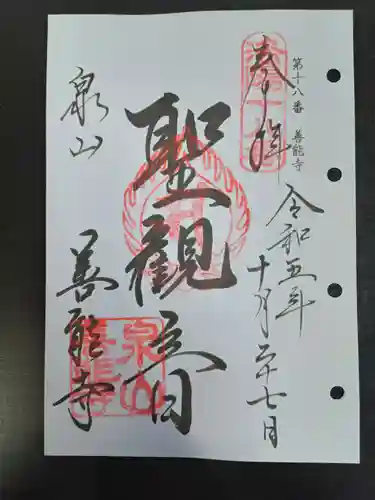 第十八番 善能寺
奉拝
令和五年
十月二十七日
聖観音
泉山
善能寺
泉山
善能寺